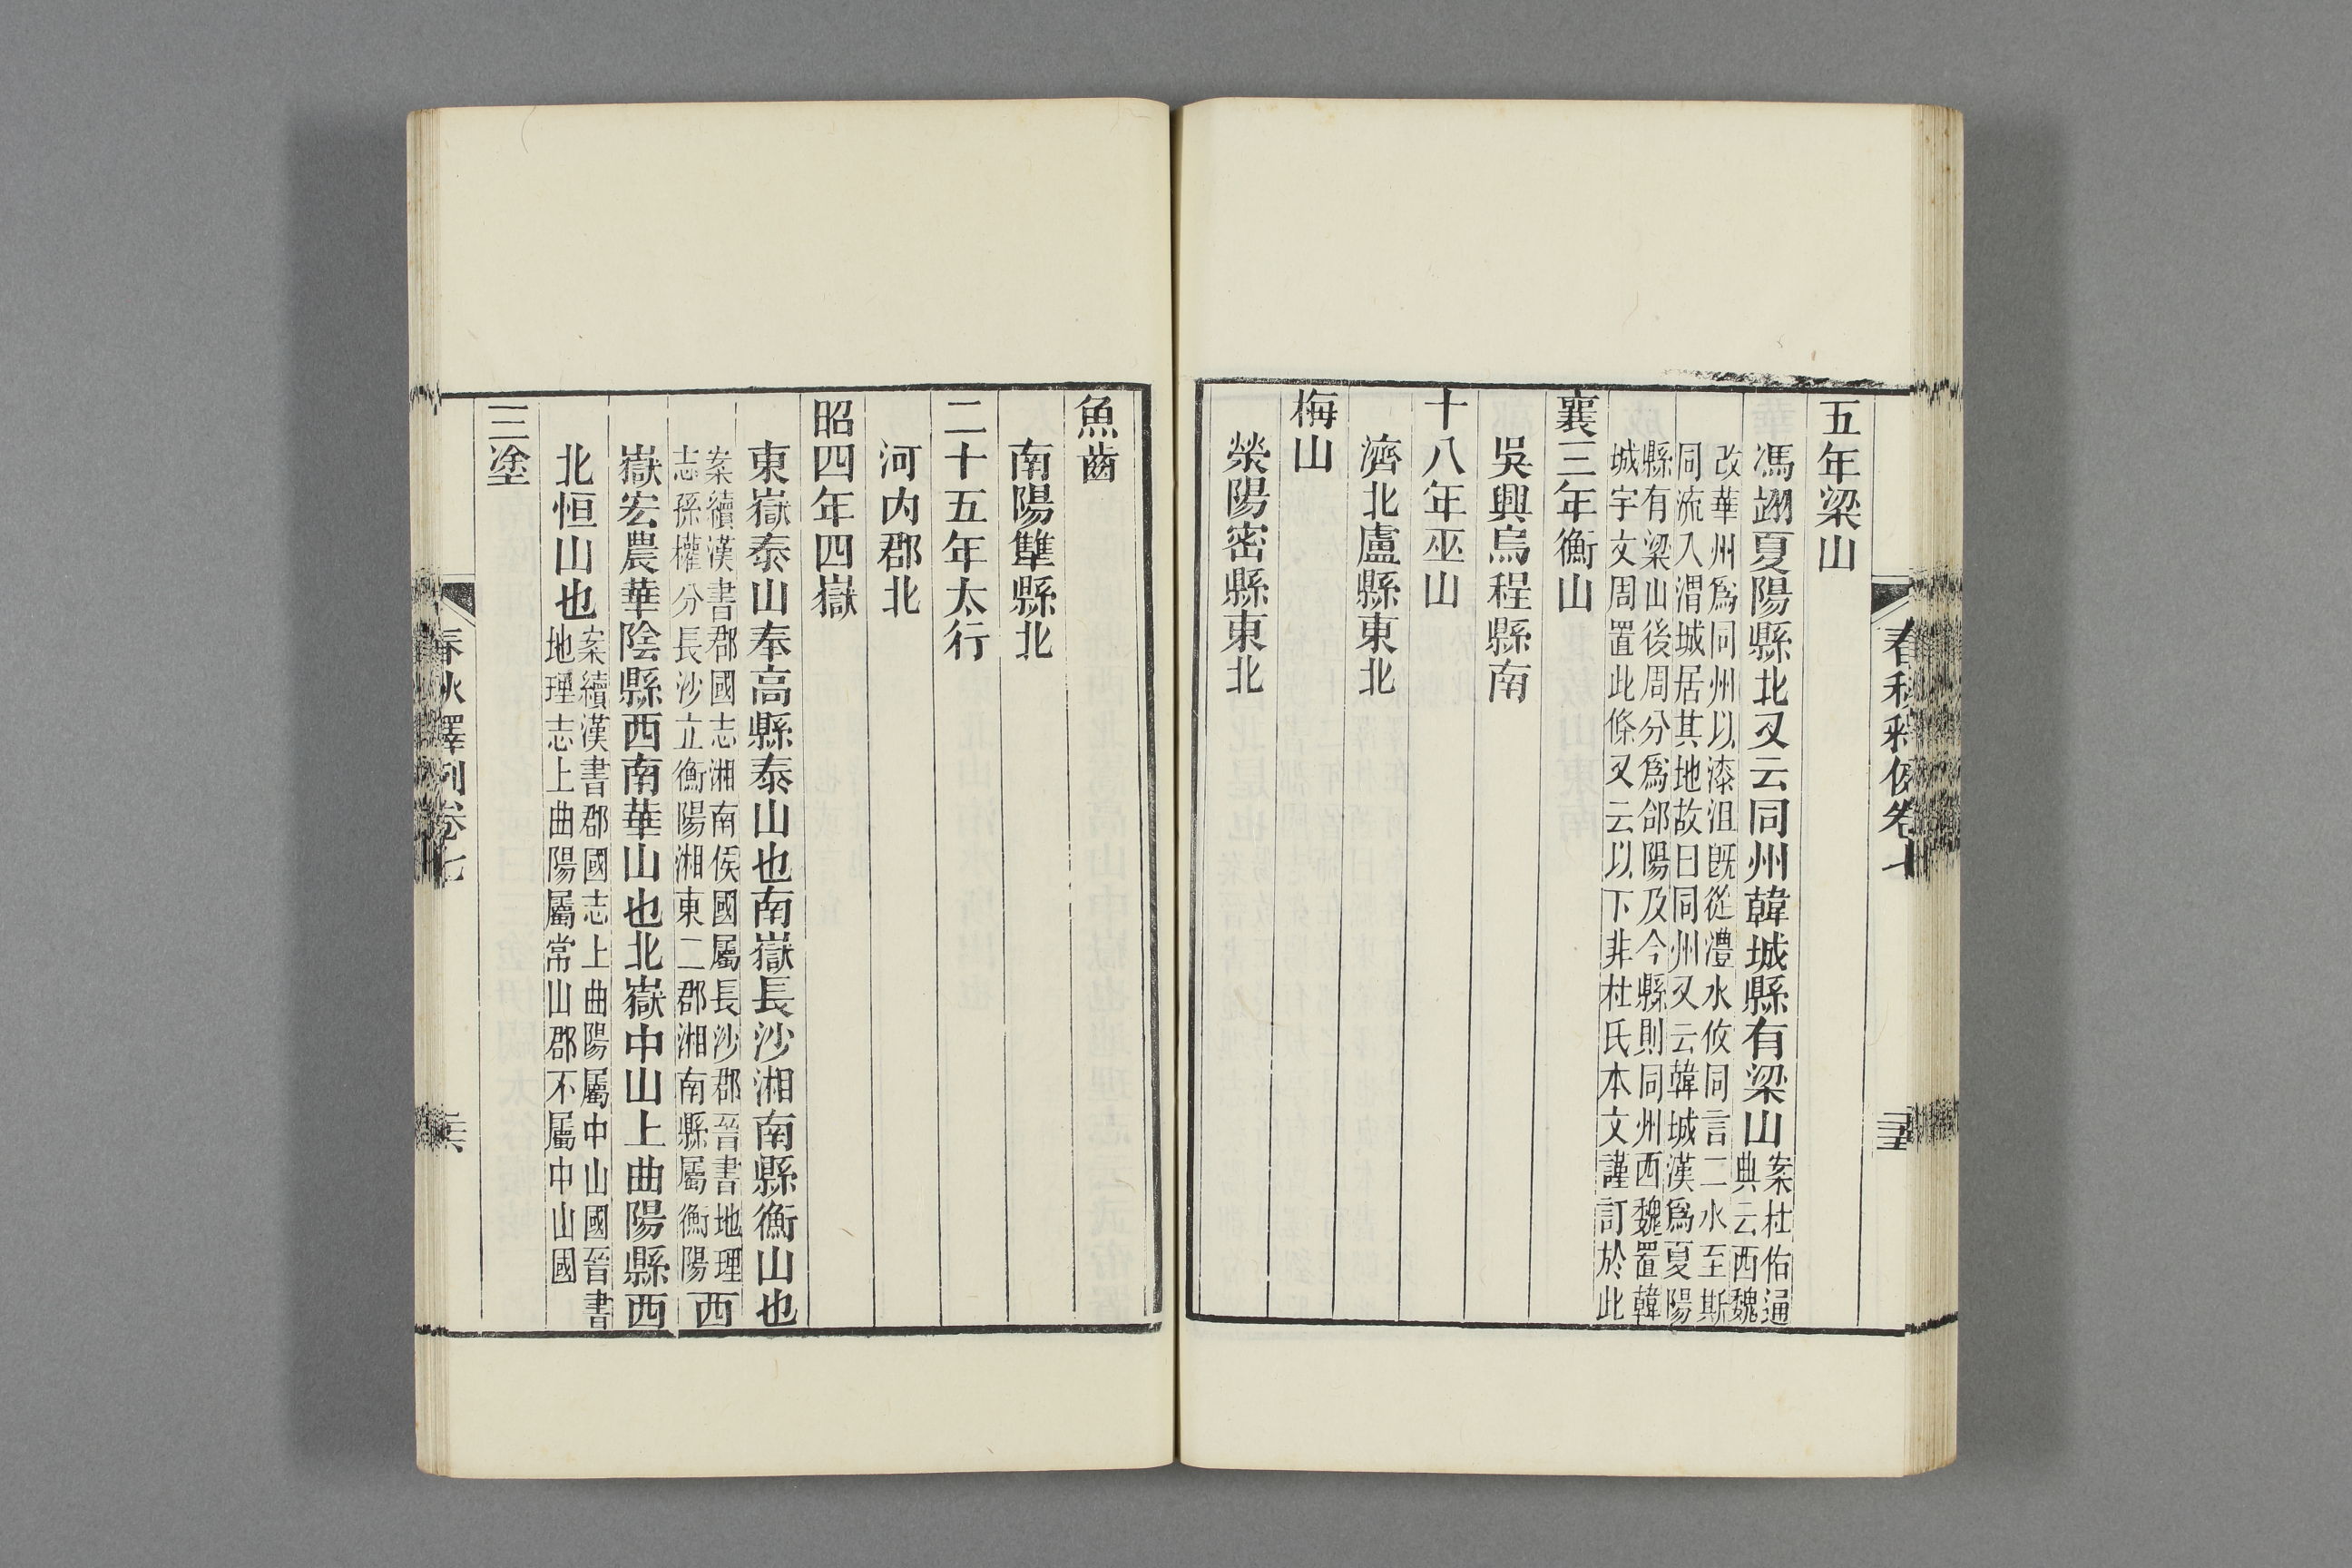 五年梁山
馮翊夏陽縣北又云同州韓城縣有梁山案杜佑通
典云西魏
改華州爲同州以漆沮既從澧水攸同言二水至斯
同流入渭城居其地故曰同州又云韓城漢爲夏陽
縣有梁山後周分爲郃陽及今縣則同州西魏置韓
城宇文周置此條又云以下非杜氏本文謹訂於此
襄三年衡山
吳興烏程縣南
十八年巫山
濟北盧縣東北
梅山
滎陽密縣東北
魚齒
南陽犨縣北
二十五年太行
河內郡北
昭四年四嶽
東嶽泰山奉高縣泰山也南嶽長沙湘南縣衡山也
案續漢書郡國志湘南侯國屬長沙郡晉書地理
志孫權分長沙立衡陽湘東二郡湘南縣屬衡陽
西
嶽宏農華陰縣西南華山也北嶽中山上曲陽縣西
北恒山也案續漢書郡國志上曲陽屬中山國晉書
地理志上曲陽屬常山郡不屬中山國
三塗
春秋釋例卷七